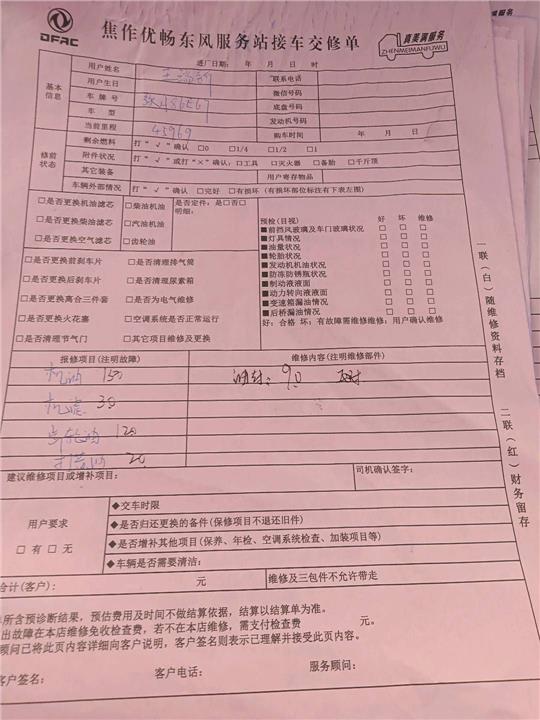 DFAC
焦作优畅东风服务站接车交修单
真美满服务
ZHENMEIMANFUWU
进厂日期： 年 月 日 时
基本信息
用户姓名
联系电话
用户生日
微信号码
车牌号
底盘号码
车型
发动机号码
当前里程 45969
购车时间 年 月 日
修前状态
剩余燃料 打“√”确认 □0 □1/4 □1/2 □1
附件状况 打“√”或打“×”确认：□工具 □灭火器 □备胎 □千斤顶
其它装备
用户寄存物品
车辆外部情况 打“√”确认 □完好 □有损坏（有损坏部位标注有下表左图）
□是否更换机油滤芯 □柴油机油 是否定件：是□否□
明细：
□是否更换柴油滤芯 □汽油机油
□是否更换空气滤芯 □齿轮油
□是否更换前刹车片 □是否清理排气筒
□是否更换后刹车片 □是否清理尿素箱
□是否更换离合三件套 □是否为电气维修
□是否更换火花塞 □空调系统是否正常运行
□是否清理节气门 □其它项目维修及更换
预检(目视) 好 坏 维修
■前挡风玻璃及车门玻璃状况 □ □ □
■灯具情况 □ □ □
■油量状况 □ □ □
■轮胎状况 □ □ □
■发动机机油状况 □ □ □
■防冻防锈瓶状况 □ □ □
■制动液液面 □ □ □
■动力转向液液面 □ □ □
■变速箱漏油情况 □ □ □
■后桥漏油情况 □ □ □
好：合格 坏：有故障需维修维修：用户确认维修
报修项目(注明故障)
维修内容(注明维修部件)
机油 150
油封：90
机滤 30
齿轮油 120
20
建议维修项目或增补项目：
司机确认签字：
用户要求
□有□无
◆交车时限
◆是否归还更换的备件(保修项目不退还旧件)
◆是否增补其他项目(保养、年检、空调系统检查、加装项目等)
◆车辆是否需要清洁：
合计(客户)： 元
维修及三包件不允许带走
所含预诊断结果，预估费用及时间不做结算依据，结算以结算单为准。
出故障在本店维修免收检查费，若不在本店维修，需支付检查费 元。
顾问已将此页内容详细向客户说明，客户签名则表示已理解并接受此页内容。
客户签名： 客户电话： 服务顾问：
一联（白）随维修资料存档 二联（红）财务留存